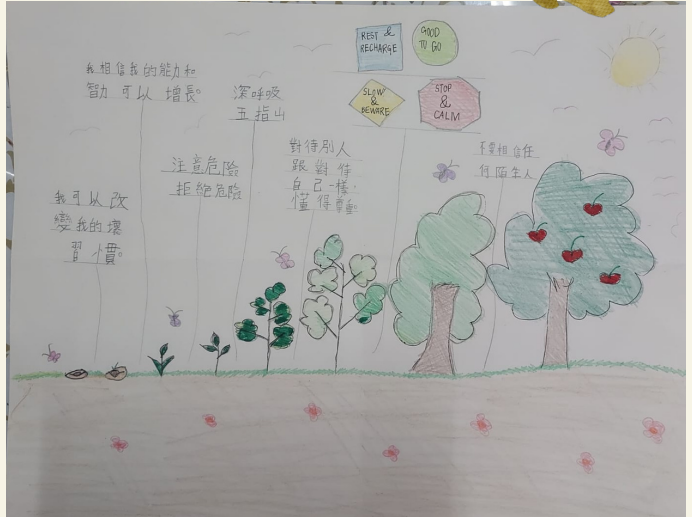 REST &
RECHARGE
GOOD
TO GO
SLOW
&
BEWARE
STOP
&
CALM
我相信我的能力和
智力 可以 增長。
深呼吸
五指山
對待別人
跟對待
自己一樣，
懂得尊重
不要相信任
何陌生人
注意危險
拒絕危險
我可以改
變我的壞
習慣。